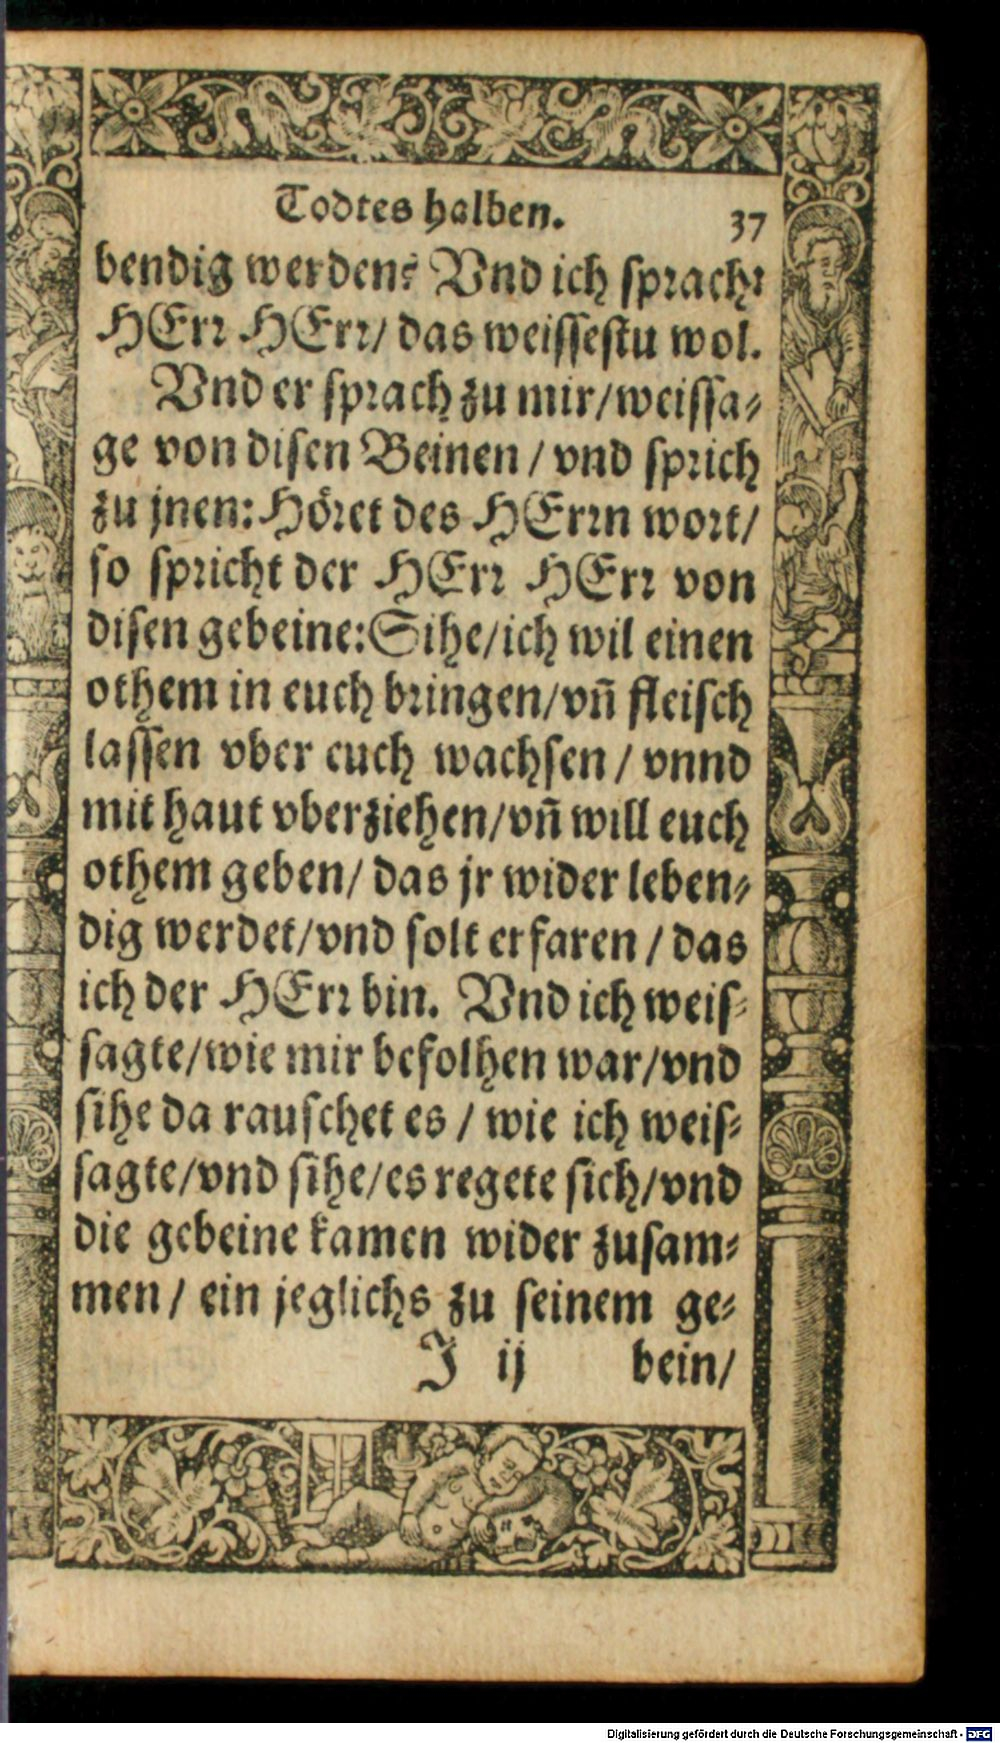 Todtes halben. 37
bendig werden? Vnd ich sprach:
HErr HErr/ das weissestu wol.
Vnd er sprach zu mir/weissa-
ge von disen Beinen / vnd sprich
zu jnen: Höret des HErrn wort/
so spricht der HErr HErr von
disen gebeine: Sihe/ich wil einen
othem in euch bringen/vn̄ fleisch
lassen vber euch wachsen / vnnd
mit haut vberziehen/vn̄ will euch
othem geben/ das jr wider leben-
dig werdet/vnd solt erfaren / das
ich der HErr bin. Vnd ich weis-
sagte/wie mir befolhen war/vnd
sihe da rauschet es / wie ich weis-
sagte/vnd sihe/es regete sich/vnd
die gebeine kamen wider zusam-
men / ein jeglichs zu seinem ge-
J ij bein/
Digitalisierung gefördert durch die Deutsche Forschungsgemeinschaft - DFG